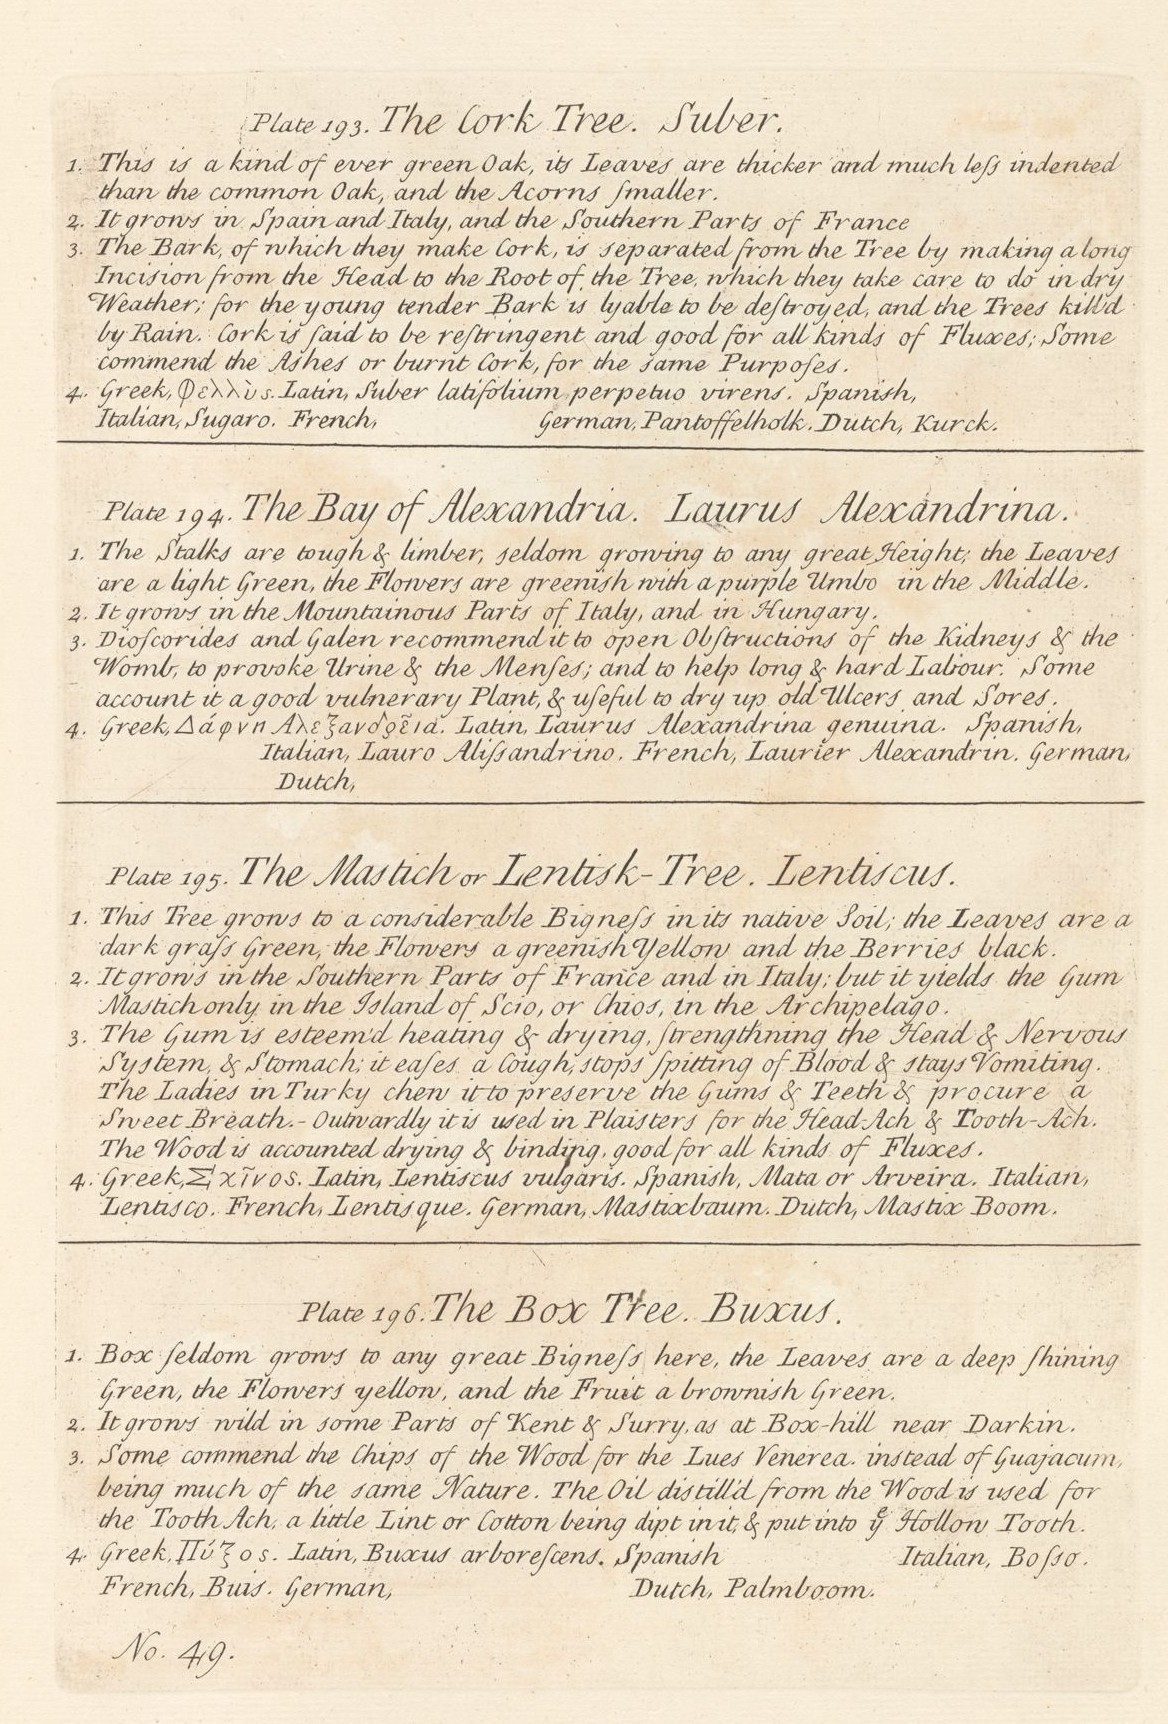 Plate 193. The Cork Tree. Suber.
1. This is a kind of ever green Oak, its Leaves are thicker and much leſs indented
than the common Oak, and the Acorns ſmaller.
2. It grows in Spain and Italy, and the Southern Parts of France
3. The Bark, of which they make Cork, is separated from the Tree by making a long
Incision from the Head to the Root of the Tree, which they take care to do in dry
Weather; for the young tender Bark is lyable to be deſtroyed, and the Trees kill'd
by Rain. Cork is ſaid to be reſtringent and good for all kinds of Fluxes; Some
commend the Ashes or burnt Cork, for the same Purpoſes.
4. Greek, Φελλὺς. Latin, Suber latifolium perpetuo virens. Spanish,
Italian, Sugaro. French, German, Pantoffelholk. Dutch, Kurck.
Plate 194. The Bay of Alexandria. Laurus Alexandrina.
1. The Stalks are tough & limber, seldom growing to any great Height; the Leaves
are a light Green, the Flowers are greenish with a purple Umbo in the Middle.
2. It grows in the Mountainous Parts of Italy, and in Hungary.
3. Dioſcorides and Galen recommend it to open Obſtructions of the Kidneys & the
Womb, to provoke Urine & the Menſes; and to help long & hard Labour. Some
account it a good vulnerary Plant, & uſeful to dry up old Ulcers and Sores.
4. Greek, Δάφνη Αλεξανδρεῖα. Latin, Laurus Alexandrina genuina. Spanish,
Italian, Lauro Aliſsandrino. French, Laurier Alexandrin. German,
Dutch,
Plate 195. The Mastich or Lentisk-Tree. Lentiscus.
1. This Tree grows to a considerable Bigneſs in its native Soil; the Leaves are a
dark graſs Green, the Flowers a greenish Yellow and the Berries black.
2. It grows in the Southern Parts of France and in Italy; but it yields the Gum
Mastich only in the Island of Scio, or Chios, in the Archipelago.
3. The Gum is esteem'd heating & drying, ſtrengthning the Head & Nervous
System, & Stomach; it eaſes a Cough, stops ſpitting of Blood & stays Vomiting.
The Ladies in Turky chew it to preserve the Gums & Teeth & procure a
Sweet Breath.- Outwardly it is used in Plaisters for the Head-Ach & Tooth-Ach.
The Wood is accounted drying & binding, good for all kinds of Fluxes.
4. Greek, Σχῖνος. Latin, Lentiscus vulgaris. Spanish, Mata or Arveira. Italian,
Lentisco. French, Lentisque. German, Mastixbaum. Dutch, Mastix Boom.
Plate 196. The Box Tree. Buxus.
1. Box ſeldom grows to any great Bigneſs here, the Leaves are a deep ſhining
Green, the Flowers yellow, and the Fruit a brownish Green.
2. It grows wild in some Parts of Kent & Surry, as at Box-hill near Darkin.
3. Some commend the Chips of the Wood for the Lues Venerea. instead of Guajacum,
being much of the same Nature. The Oil distill'd from the Wood is used for
the Tooth Ach, a little Lint or Cotton being dipt in it, & put into yͤ Hollow Tooth.
4. Greek, Πύξος. Latin, Buxus arboreſcens. Spanish Italian, Boſso.
French, Buis. German, Dutch, Palmboom.
No. 49.